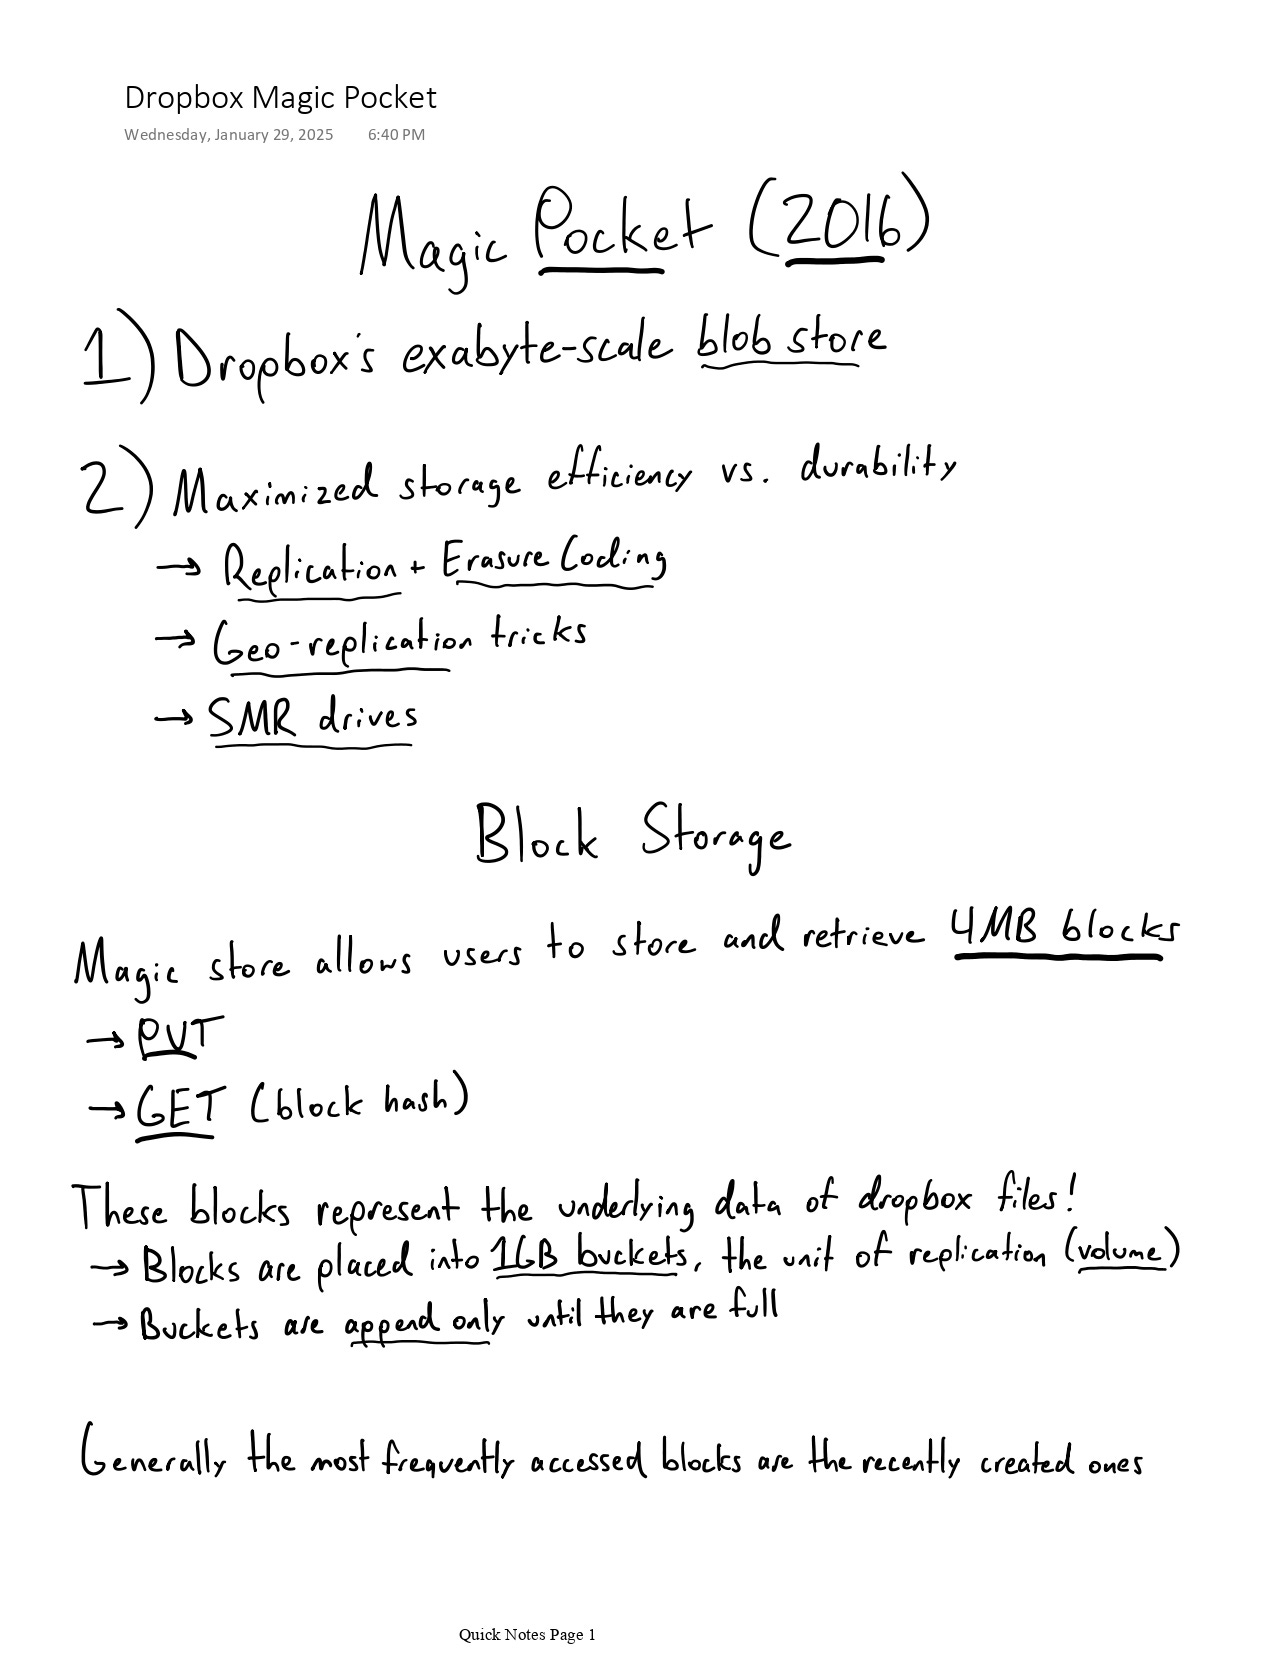 Dropbox Magic Pocket
Wednesday, January 29, 2025 6:40 PM
Magic Pocket (2016)
1) Dropbox's exabyte-scale blob store
2) Maximized storage efficiency vs. durability
→ Replication + Erasure Coding
→ Geo-replication tricks
→ SMR drives
Block Storage
Magic store allows users to store and retrieve 4MB blocks
→ PUT
→ GET (block hash)
These blocks represent the underlying data of dropbox files!
→ Blocks are placed into 1GB buckets, the unit of replication (volume)
→ Buckets are append only until they are full
Generally the most frequently accessed blocks are the recently created ones
Quick Notes Page 1